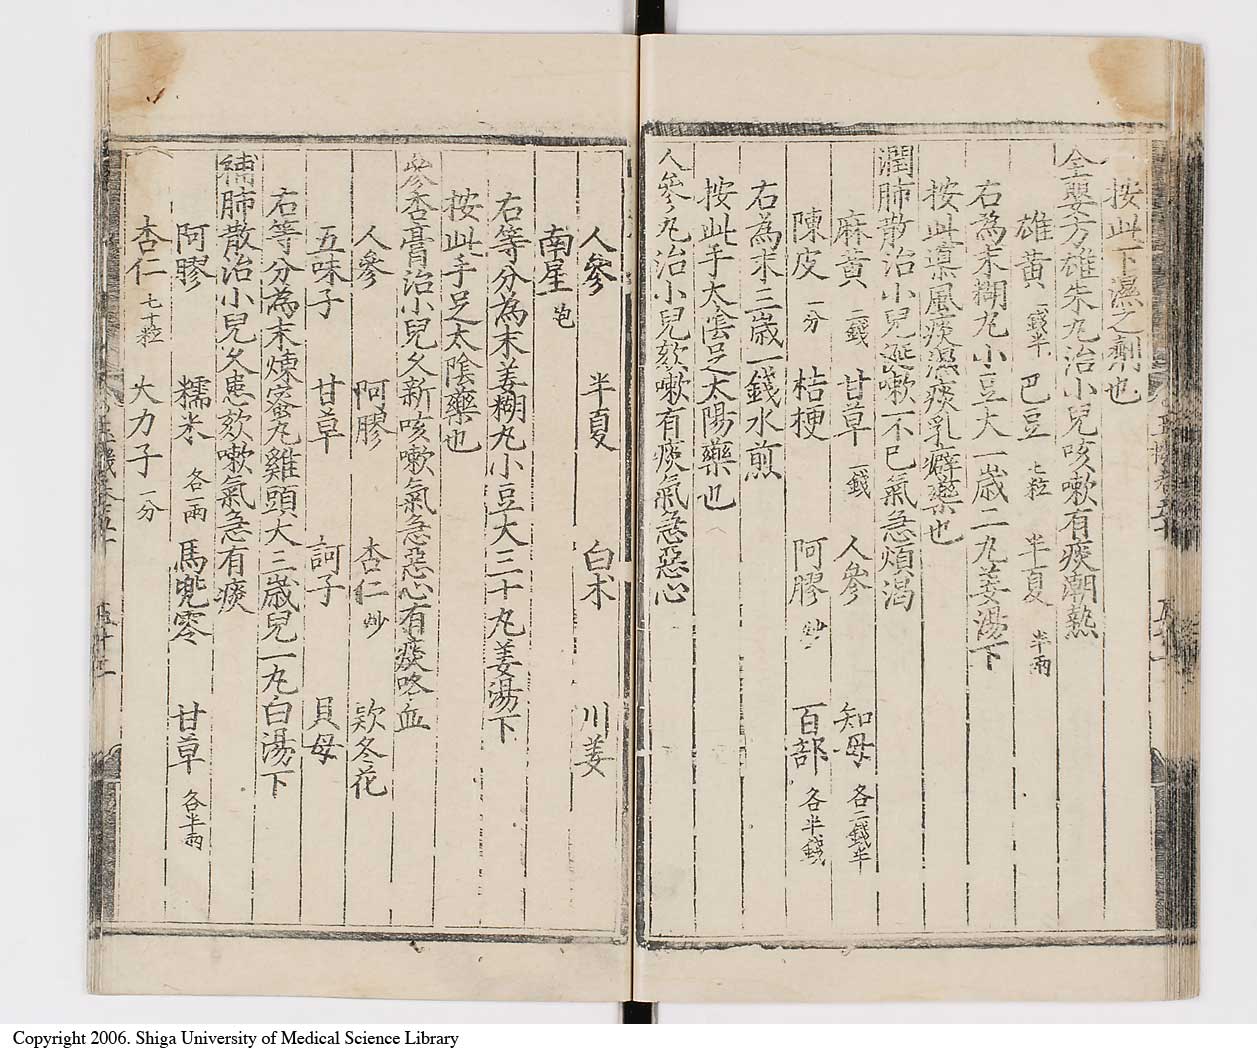 按此下濕之劑也
全嬰方雄朱丸治小兒咳嗽有痰潮熱
雄黄 一錢半 巴豆 七粒 半夏 半兩
右為末糊丸小豆大一歲二丸姜湯下
按此導風痰濕痰乳癖藥也
潤肺散治小兒涎嗽不已氣急煩渴
麻黄 二錢 甘草 一錢 人參 知母 各二錢半
陳皮 一分 桔梗 阿膠 炒 百部 各半錢
右為末三歲一錢水煎
按此手太陰足太陽藥也
人參丸治小兒欬嗽有痰氣急惡心
人參 半夏 白朮 川姜
南星 炮
右等分為末姜糊丸小豆大三十丸姜湯下
按此手足太陰藥也
參杏膏治小兒久新咳嗽氣急惡心有痰咯血
人參 阿膠 杏仁 炒 欵冬花
五味子 甘草 訶子 貝母
右等分為末煉蜜丸雞頭大三歲兒一丸白湯下
補肺散治小兒久患欬嗽氣急有痰
阿膠 糯米 各一兩 馬兜零 甘草 各半兩
杏仁 七十粒 大力子 一分
Copyright 2006. Shiga University of Medical Science Library